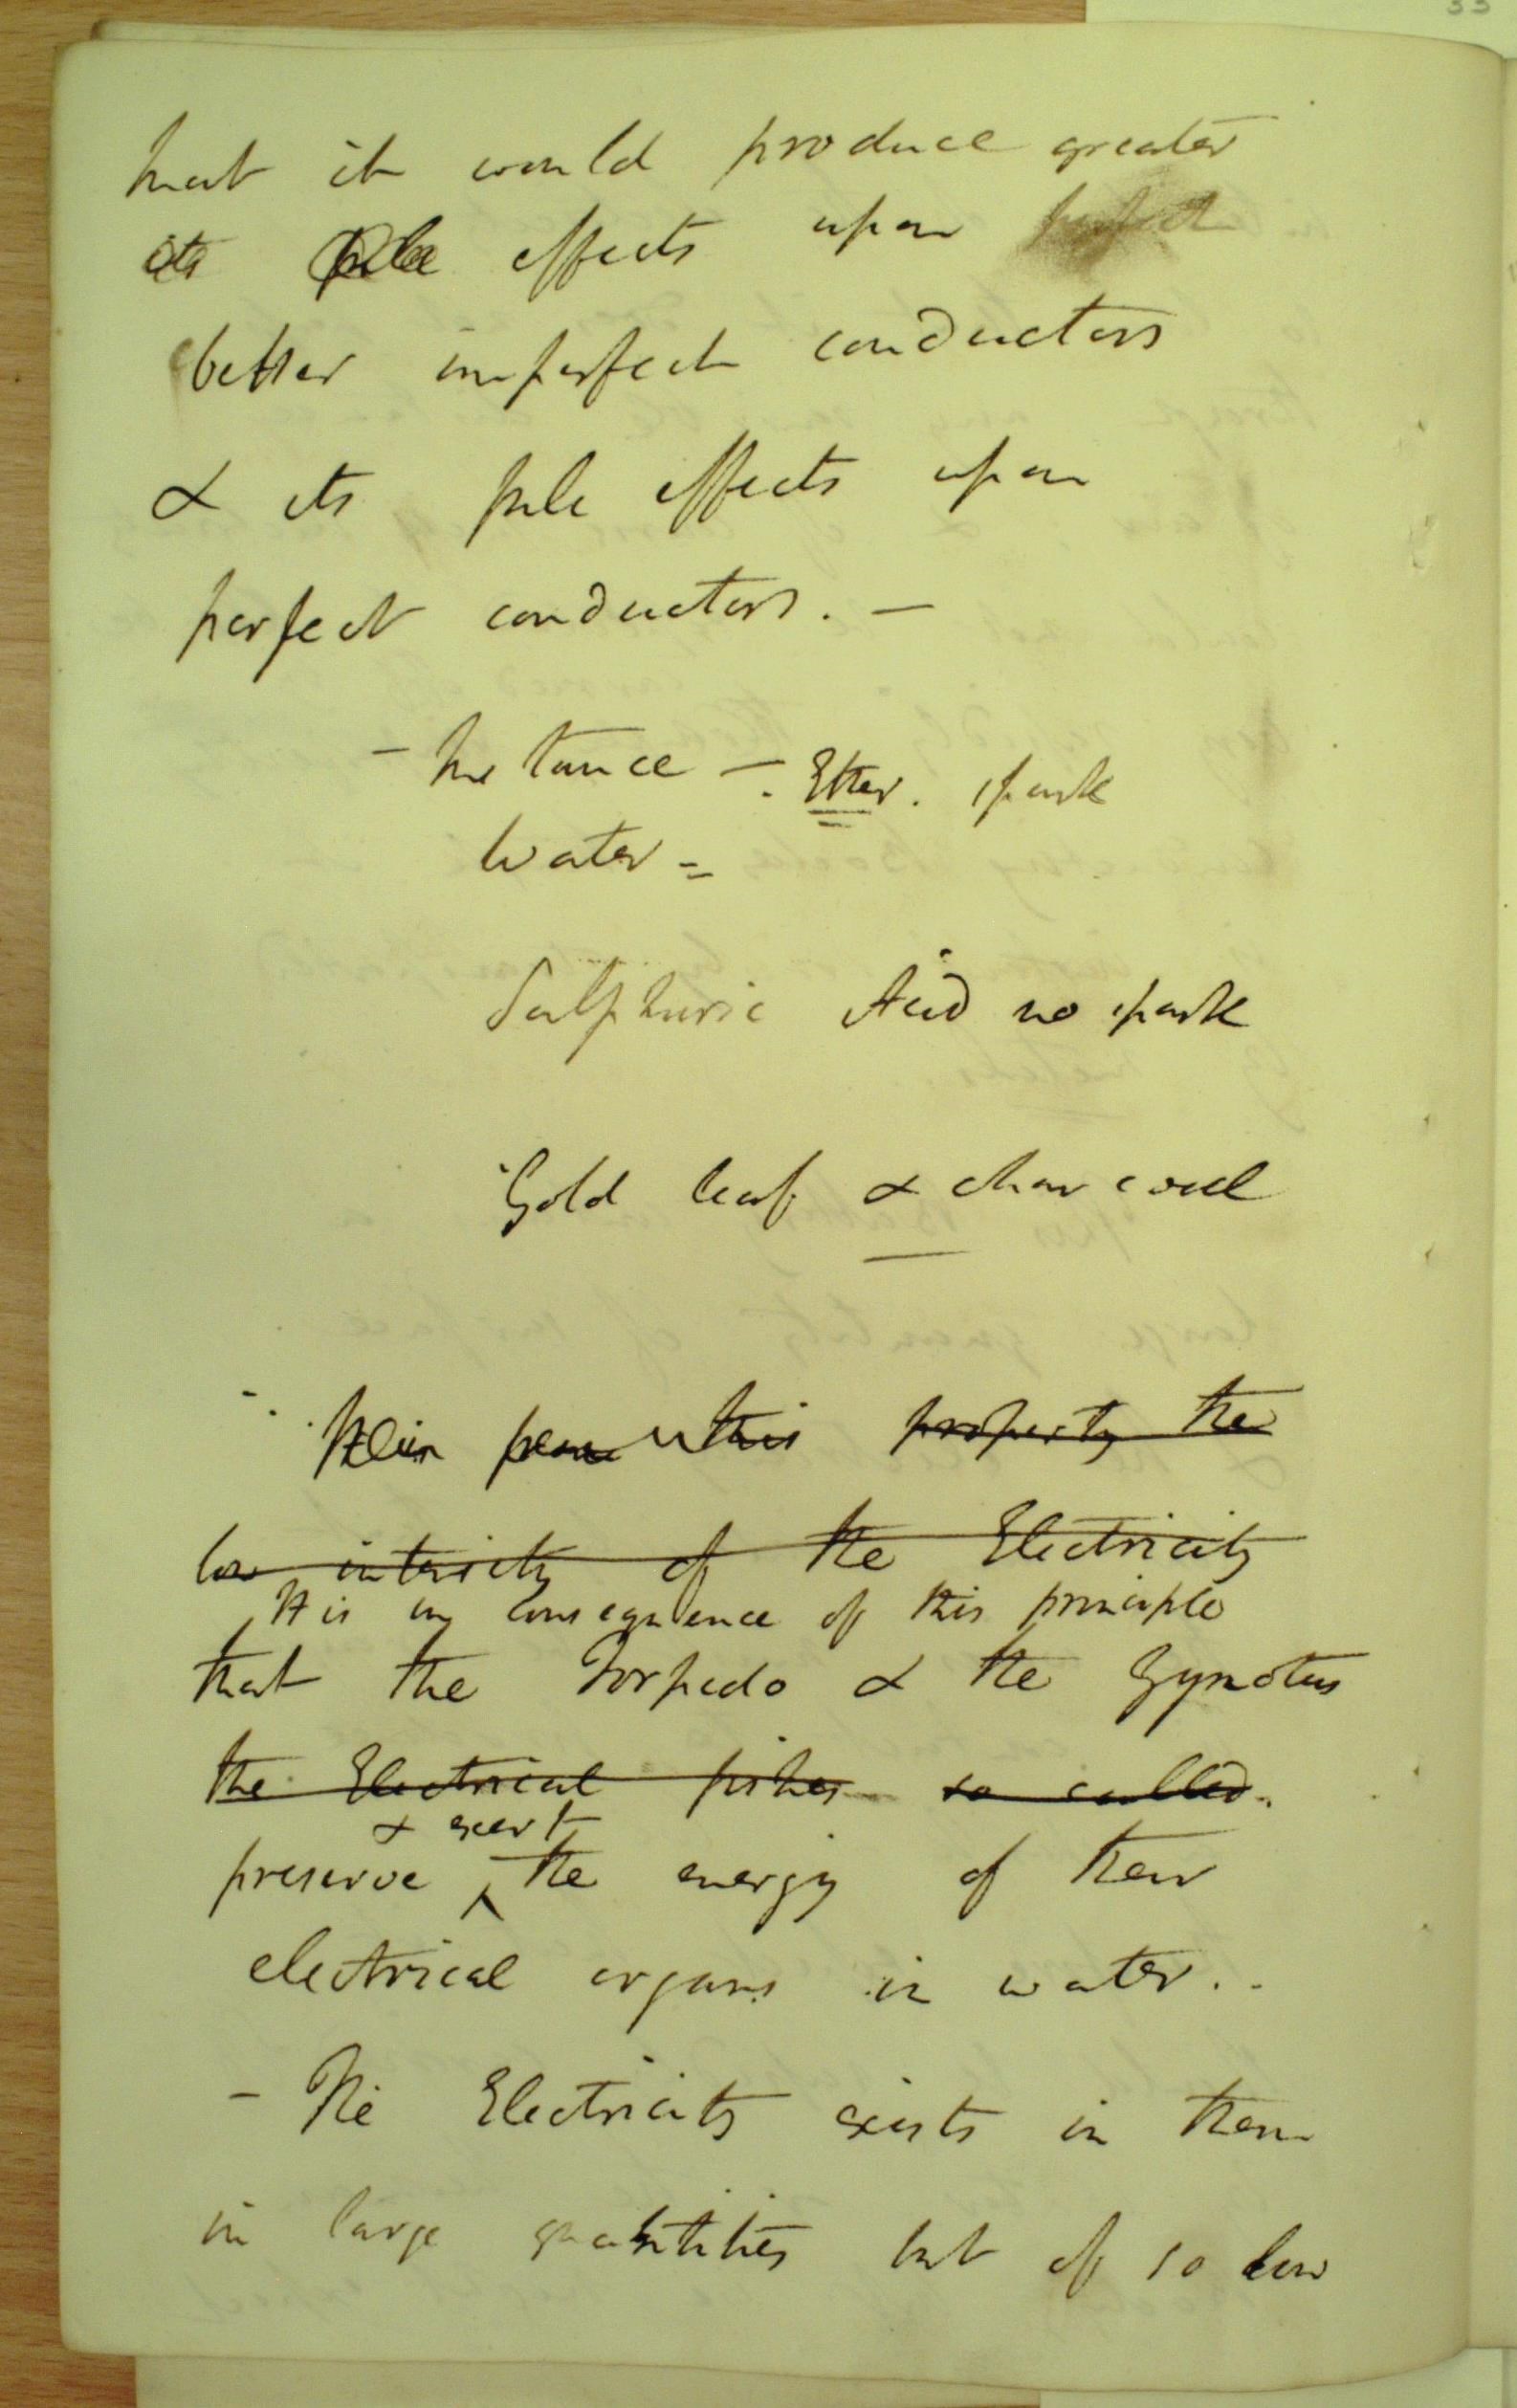 that it would produce greater
its effects upon
better imperfect conductors
& its pole effects upon
perfect conductors. —
– Instance –. Ether. spark
Water =
Sulphuric Acid no spark
Gold leaf & charcoal
this property the
low intensity of the Electricity
It is in consequence of this principle
that the Torpedo & the Gymotus
the Electrical fishes so called.
& exert
preserve ^ the energy of their
electrical organs in water..
– The Electricity exists in them
in large quantities but of so low